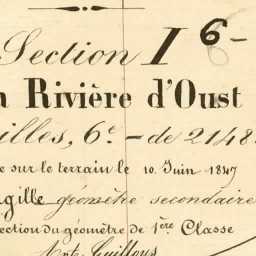 Section I 6
Rivière d'Oust
illes, 6.e de 2148
sur le terrain le 10 Juin 1847
gille géomètre secondaire
ection du géomètre de 1ère Classe
Guillous